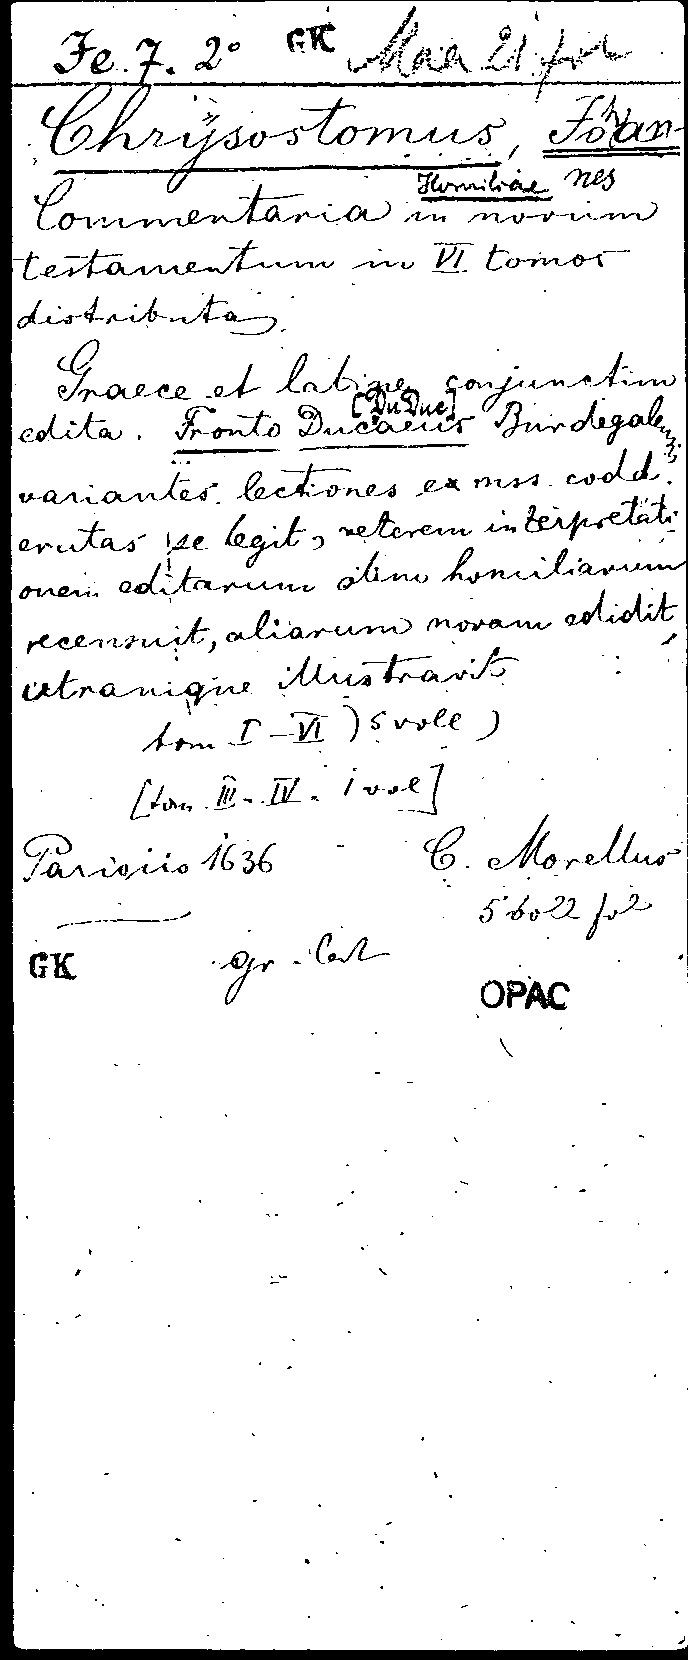 Fe. 7. 2° GK Maa 21 fol
Chrysostomus, Johan-
Homiliae nes
Commentaria in novum
testamentum in VI tomos
distributa.
Graece et latine conjunctim
[Du Duc]
edita. Fronto Ducaeus Burdegalensis
variantes lectiones ex mss. codd.
erutas selegit, veterem interpretati
onem editarum olim homiliarum
recensuit, aliarum novam edidit,
utramque illustravit
tom I - VI ) 5 voll )
[tom III - IV. 1 vol]
Parisiis 1636 C. Morellus
5 voll fol
GK gr. - lat
OPAC